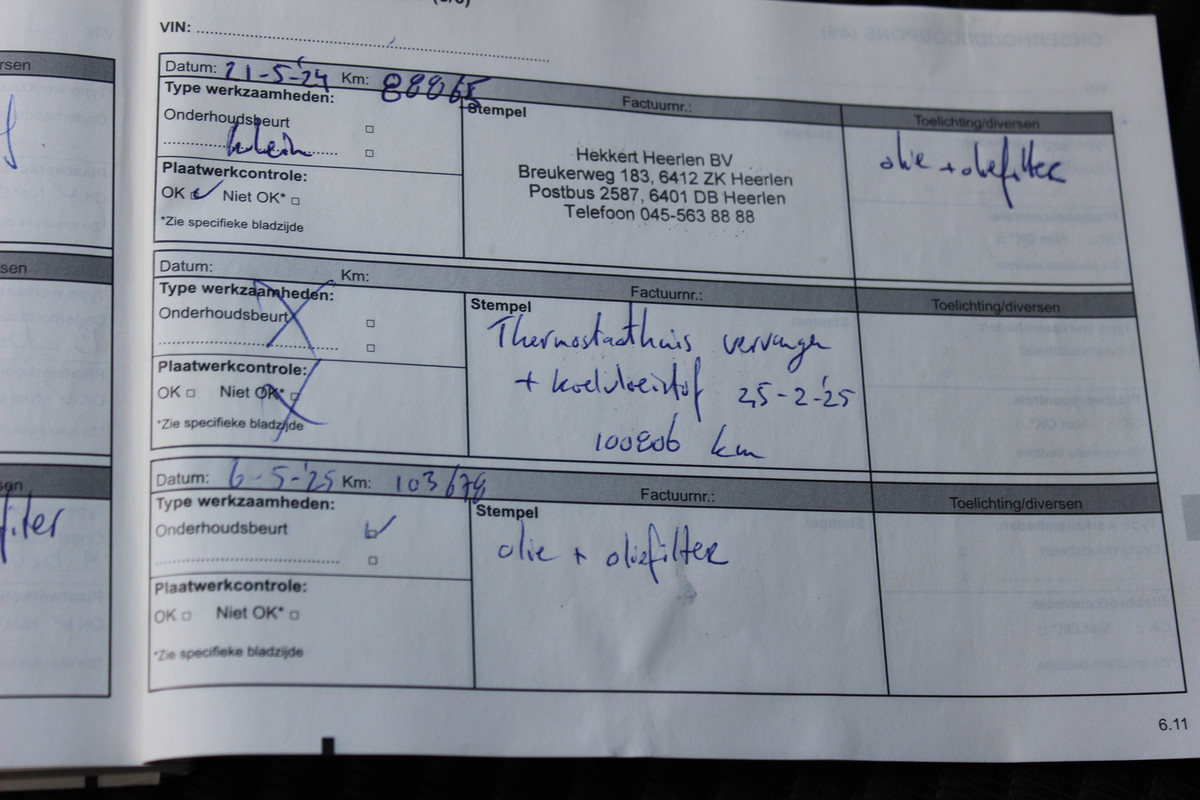 VIN:
Datum: 21-5-'24 Km: 88865
Type werkzaamheden:
Onderhoudsbeurt
klein
Plaatwerkcontrole:
OK Niet OK*
*Zie specifieke bladzijde
Factuurnr.:
Stempel
Hekkert Heerlen BV
Breukerweg 183, 6412 ZK Heerlen
Postbus 2587, 6401 DB Heerlen
Telefoon 045-563 88 88
Toelichting/diversen
olie + oliefilter
Datum: Km:
Type werkzaamheden:
Onderhoudsbeurt
Plaatwerkcontrole:
OK Niet OK*
*Zie specifieke bladzijde
Factuurnr.:
Stempel
Thermostaathuis vervangen
+ koelvloeistof 25-2-'25
100806 km
Toelichting/diversen
Datum: 6-5-'25 Km: 103678
Type werkzaamheden:
Onderhoudsbeurt
Plaatwerkcontrole:
OK Niet OK*
*Zie specifieke bladzijde
Factuurnr.:
Stempel
olie + oliefilter
Toelichting/diversen
6.11